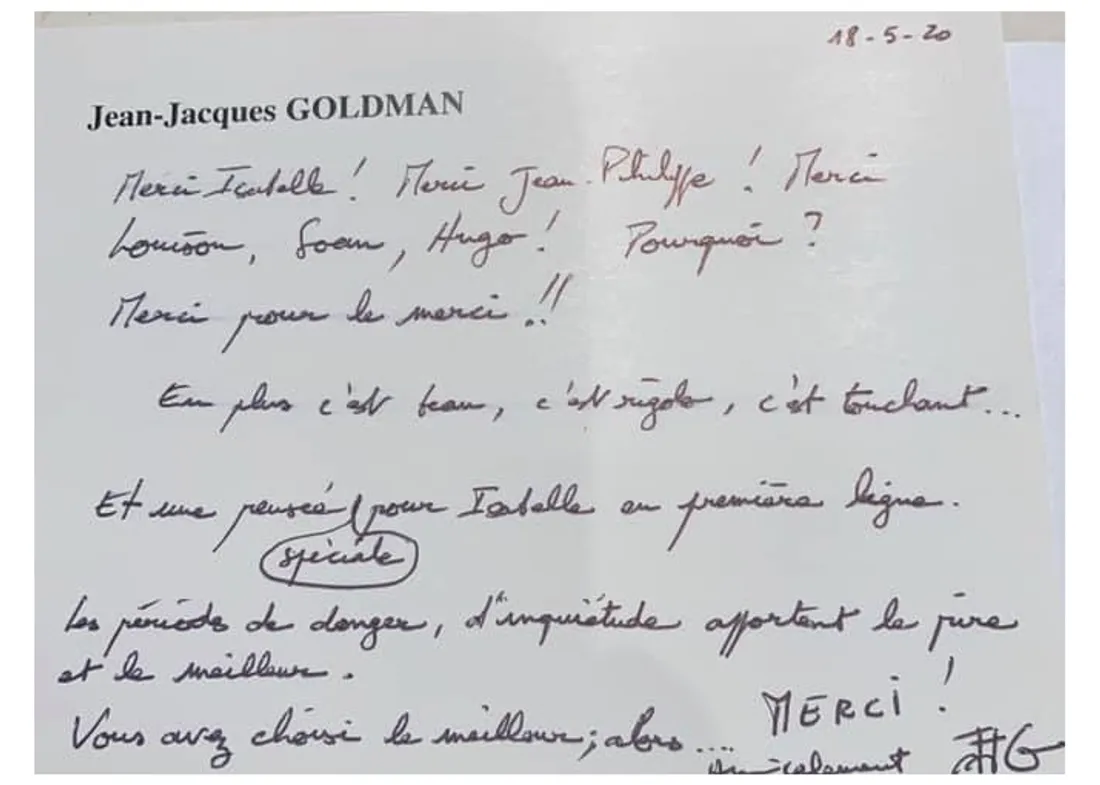 18-5-20
Jean-Jacques GOLDMAN
Merci Isabelle ! Merci Jean-Philippe ! Merci
Louison, Soan, Hugo ! Pourquoi ?
Merci pour le merci !!
En plus c'est beau, c'est rigolo, c'est touchant...
Et une pensée pour Isabelle en première ligne.
spéciale
Les périodes de danger, d'inquiétude apportent le pire
et le meilleur.
Vous avez choisi le meilleur; alors.... MERCI !
Amicalement JJG